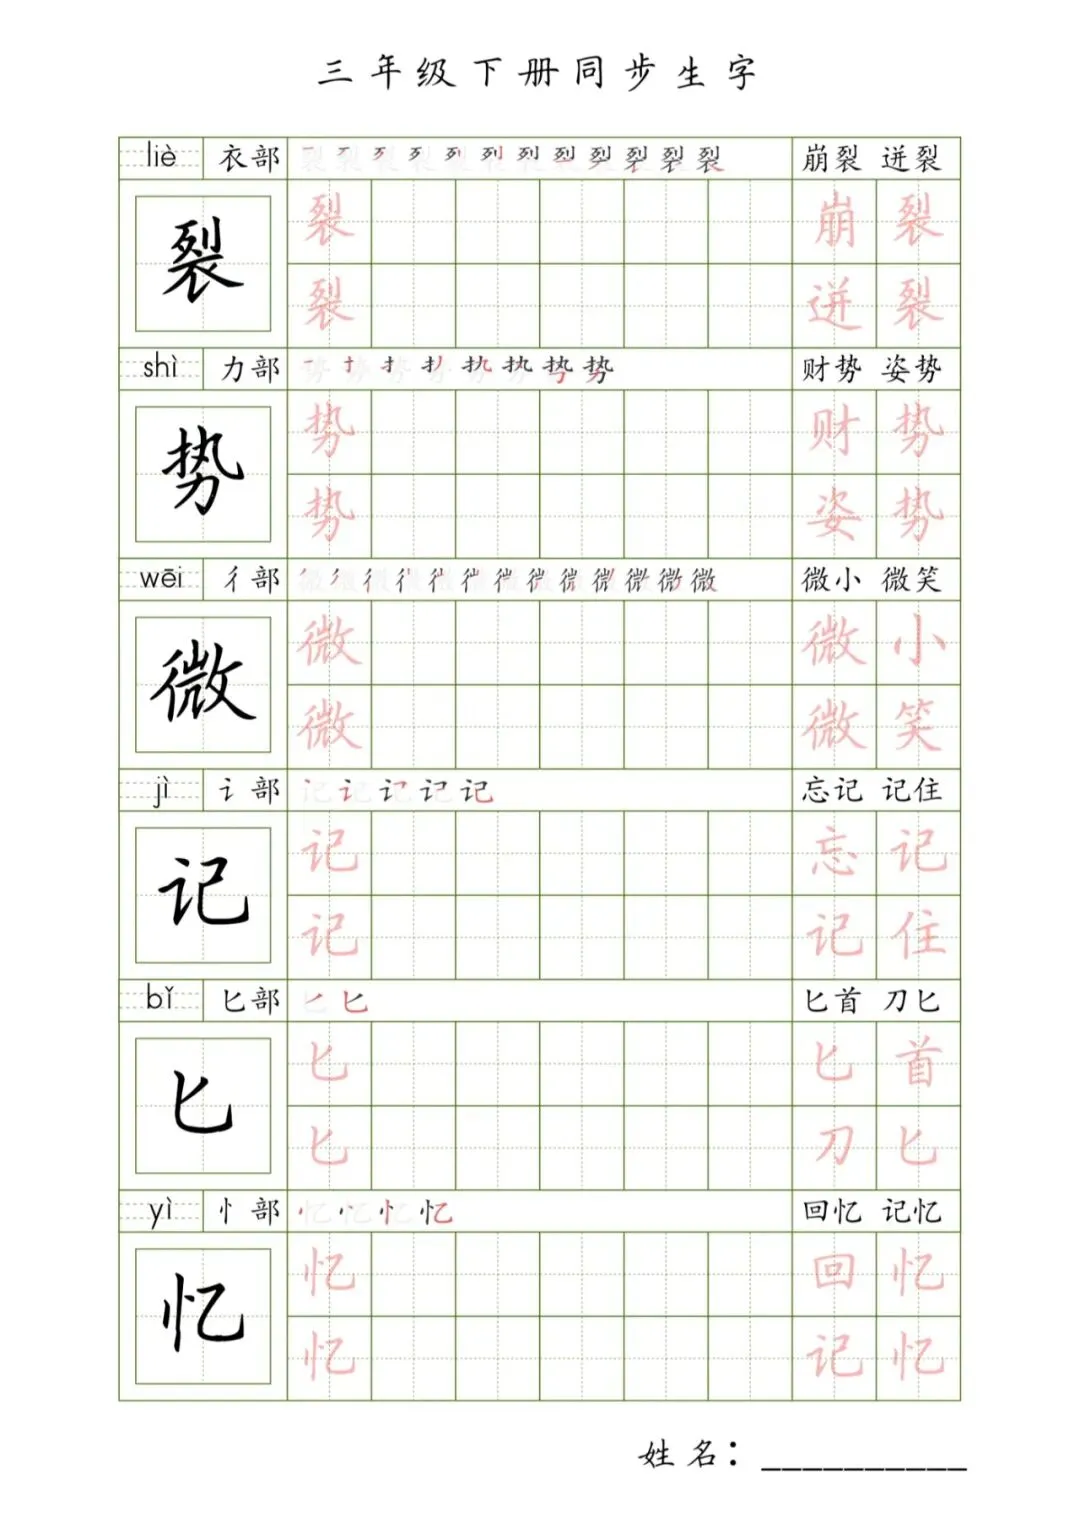 三年级下册同步生字
liè 衣部 崩裂 迸裂
裂 裂 崩裂
裂 迸裂
shì 力部 财势 姿势
势 势 财势
势 姿势
wēi 彳部 微小 微笑
微 微 微小
微 微笑
jì 讠部 忘记 记住
记 记 忘记
记 记住
bǐ 匕部 匕首 刀匕
匕 匕 匕首
匕 刀匕
yì 忄部 回忆 记忆
忆 忆 回忆
忆 记忆
姓名：__________